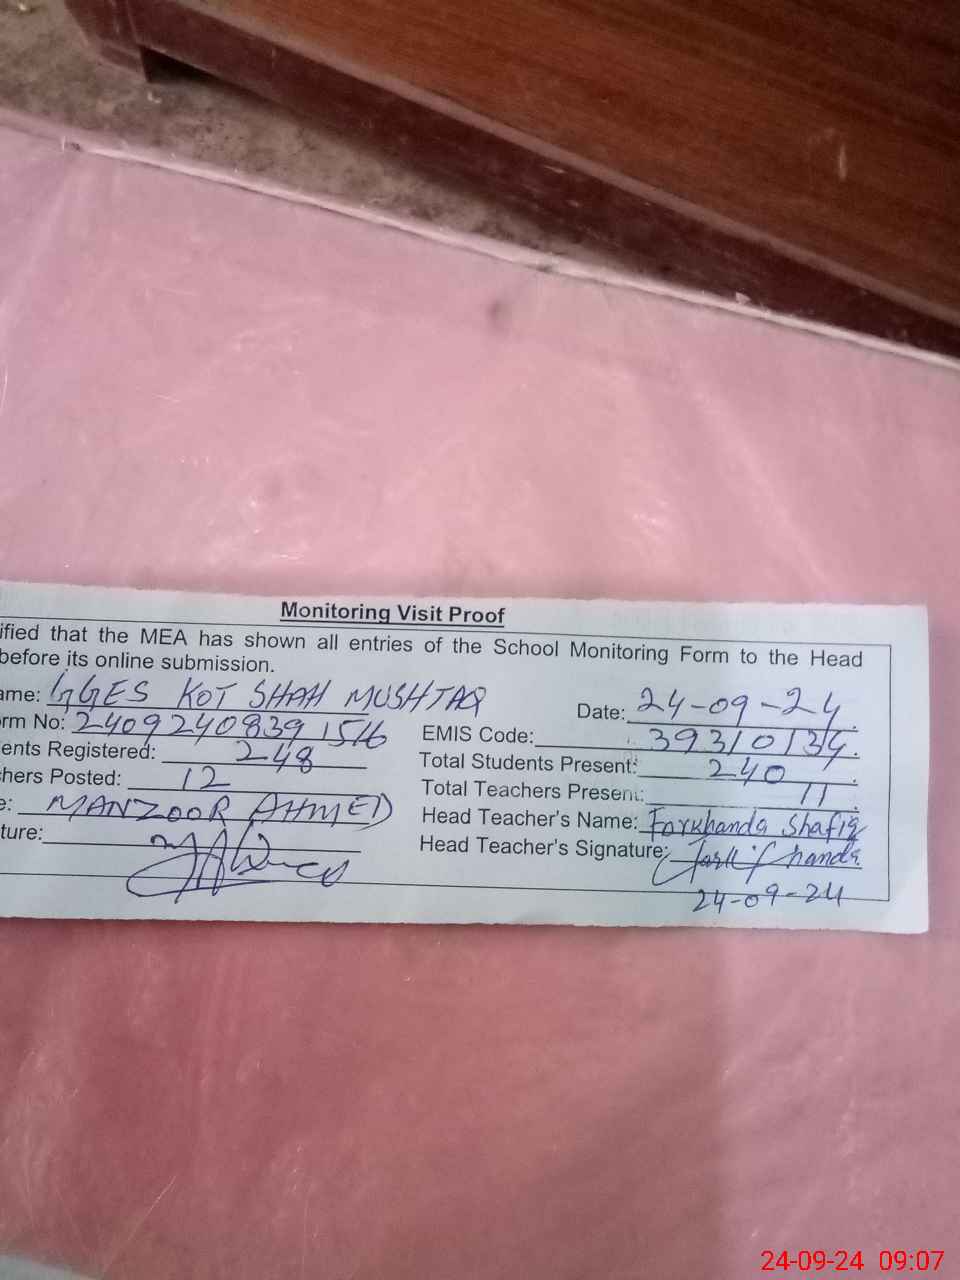 Monitoring Visit Proof
ified that the MEA has shown all entries of the School Monitoring Form to the Head
before its online submission.
ame: GGES KOT SHAH MUSHTAQ
Date: 24-09-24
rm No: 2409240839 1516
EMIS Code: 39310134
ents Registered: 248
Total Students Present: 240
hers Posted: 12
Total Teachers Present: 11
e: MANZOOR AHMED
Head Teacher's Name: Farkhanda Shafiq
ture:
Head Teacher's Signature: Farkhanda
24-09-24
24-09-24 09:07